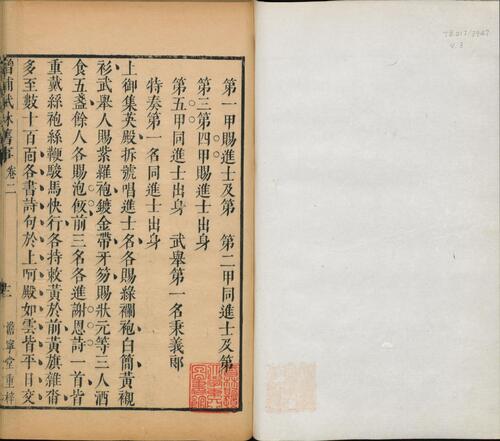 第一甲賜進士及第　第二甲同進士及第
第三第四甲賜進士出身
第五甲同進士出身　武舉第一名秉義郎
特奏第一名同進士出身
上御集英殿拆號唱進士名各賜綠襴袍白簡黃襯
衫武舉人賜紫羅袍鍍金帶牙笏賜狀元等三人酒
食五盞餘人各賜泡飯前三名各進謝恩詩一首皆
重戴絲袍絲鞭駿馬快行各持敕黃於前黃旗雜沓
多至數十百面各書詩句於上呵殿如雲皆平日交
增補武林舊事 卷二 澹寧堂重梓
TB 017/2947
v.3